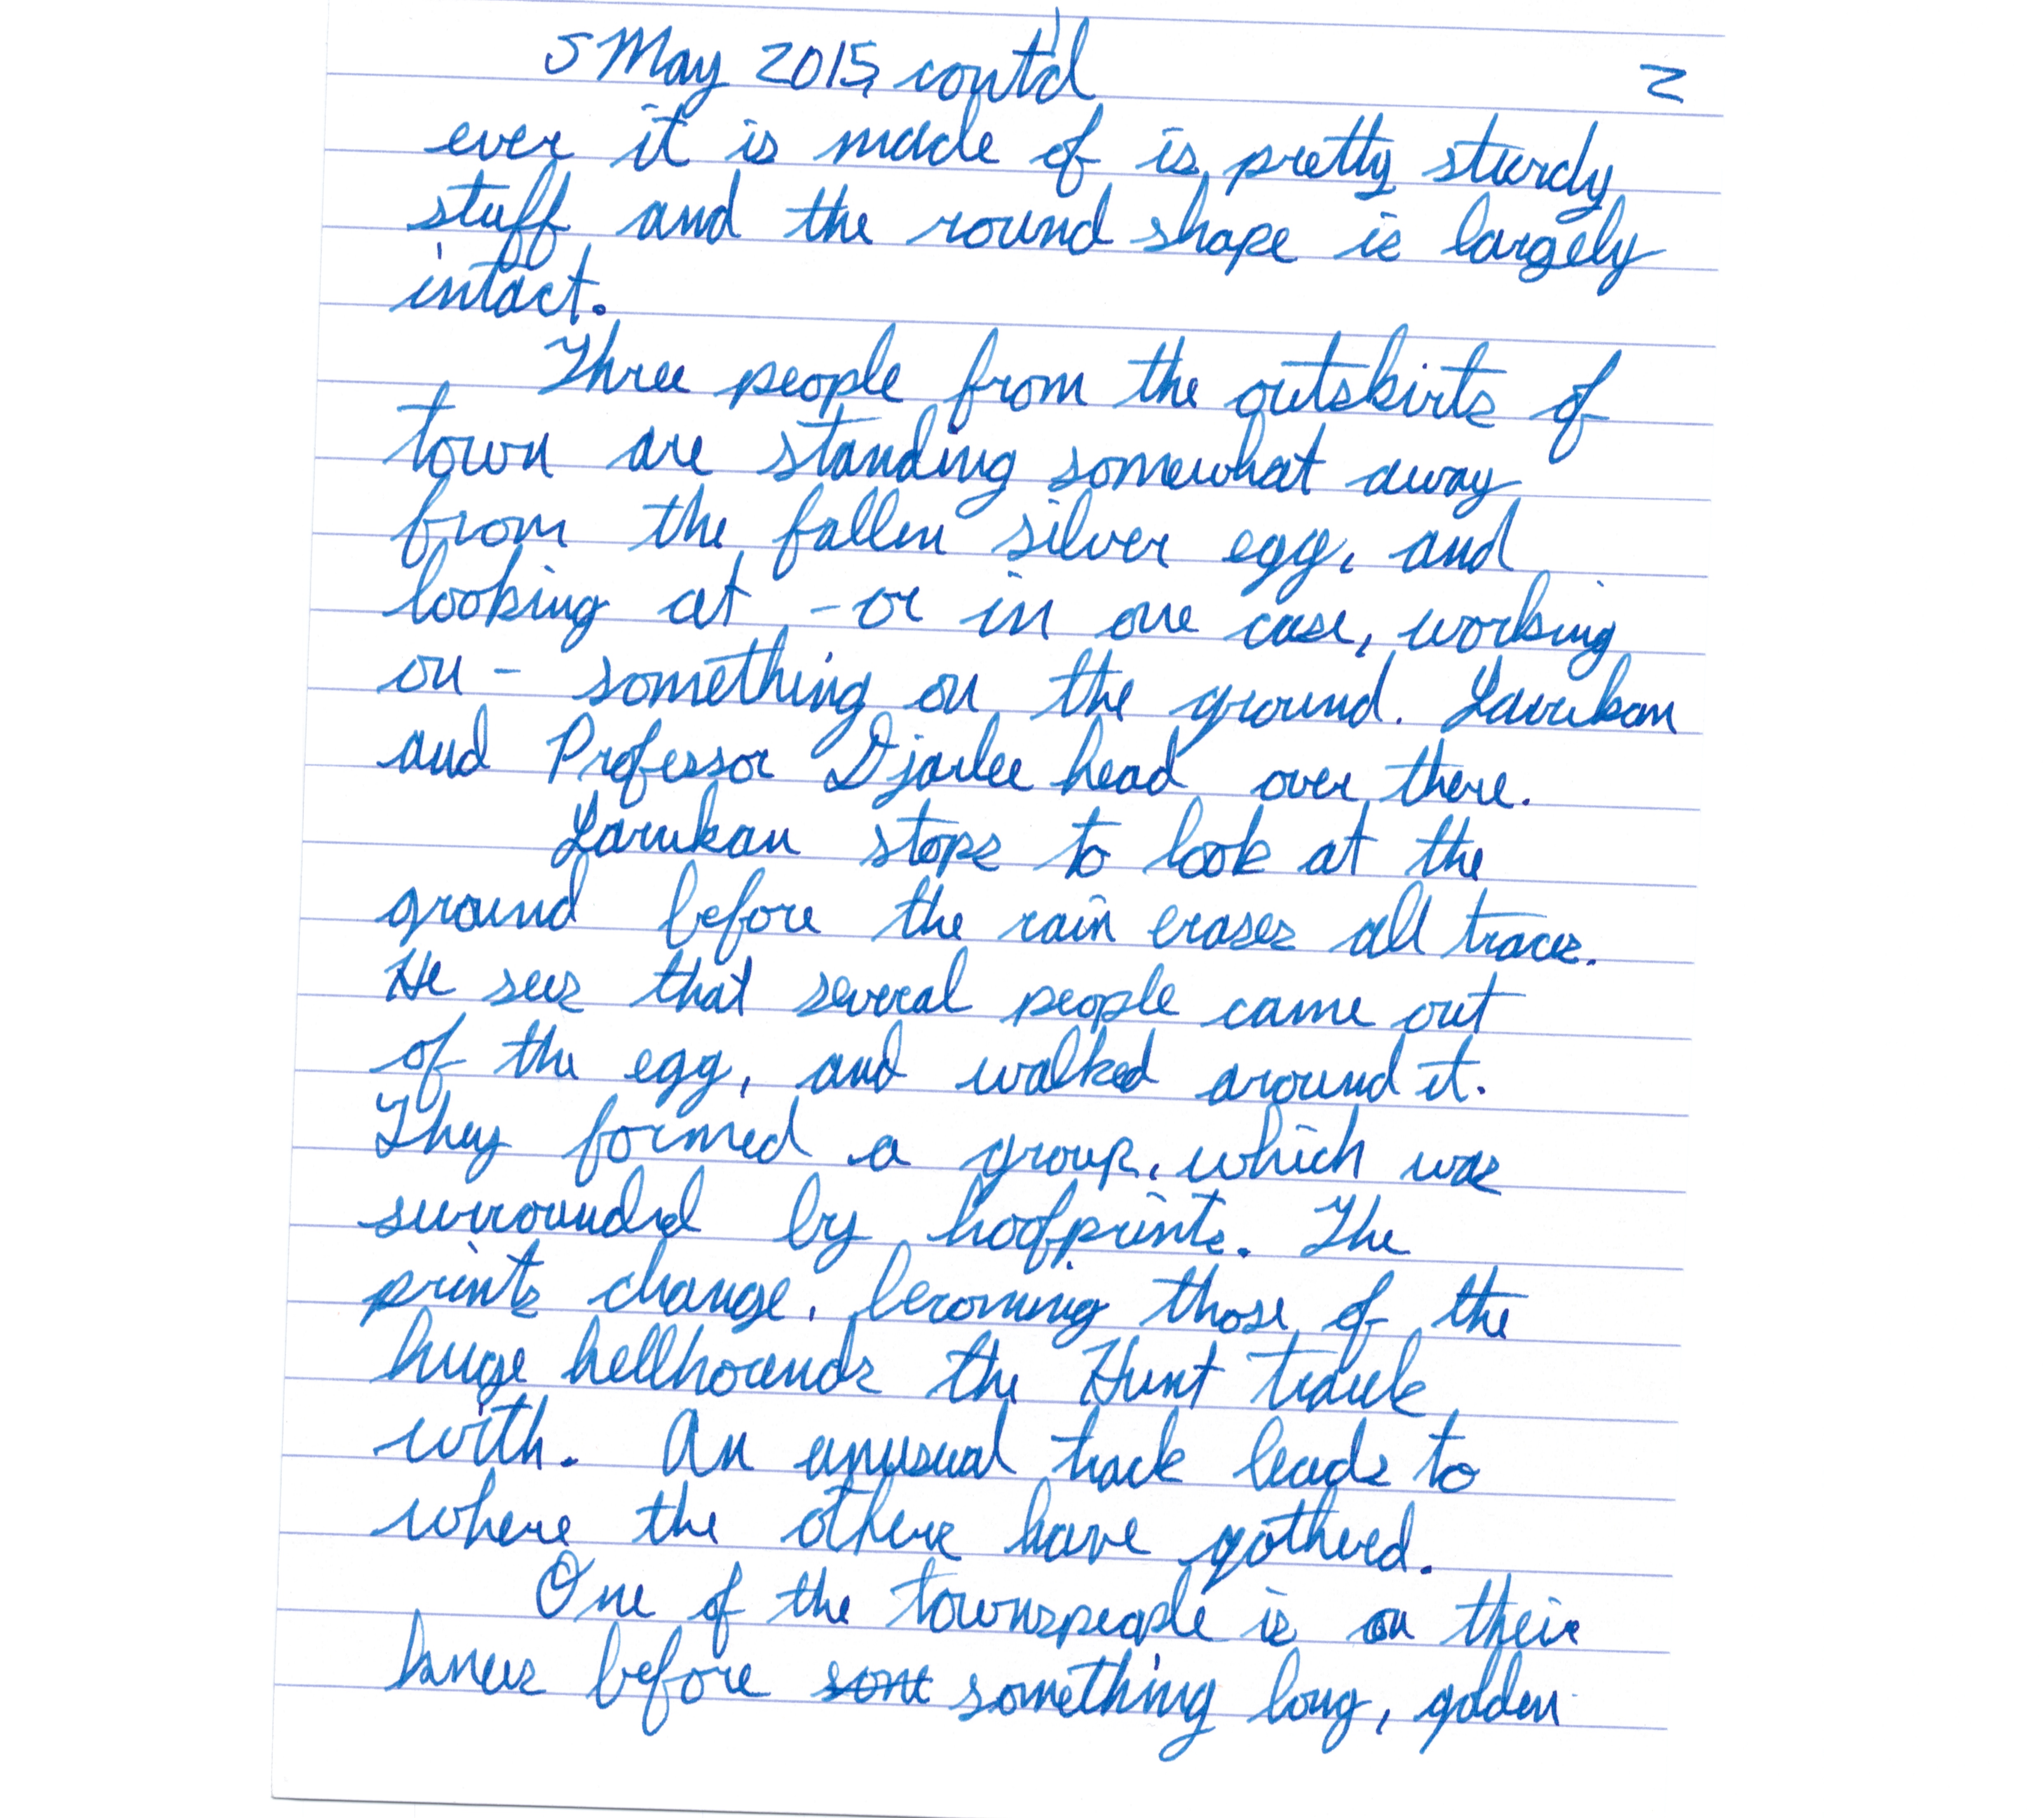 5 May 2015, cont'd 2
ever it is made of is pretty sturdy
stuff and the round shape is largely
intact.
Three people from the outskirts of
town are standing somewhat away
from the fallen silver egg, and
looking at - or in one case, working
on - something on the ground. Larukan
and Professor Djarlee head over there.
Larukan stops to look at the
ground before the rain erases all trace.
He sees that several people came out
of the egg, and walked around it.
They formed a group, which was
surrounded by hoofprints. The
prints change, becoming those of the
huge hellhounds the Hunt track
with. An unusual track leads to
where the others have gathered.
One of the townspeople is on their
knees before some something long, golden